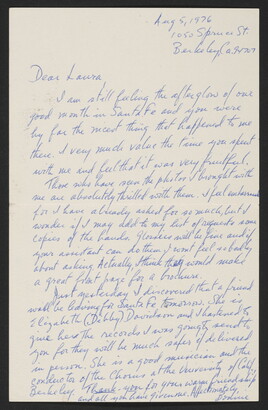 Aug 5, 1976
1050 Spruce St.
Berkeley, Ca 94707
Dear Laura
I am still feeling the afterglow of our
good month in Santa Fe and you were
by far the nicest thing that happened to me
there. I very much value the time you spent
with me and feel that it was very fruitful.
Those who have seen the photos I brought with
me are absolutely thrilled with them. I feel
for I have already asked for so much, but I
wonder if I may add to my list of requests some
copies of the hands. Glossies will be fine and if
your assistant can do them, I won't feel so badly
about asking. Actually, I think they would make
a great front page for a brochure.
Just yesterday I discovered that a friend
will be leaving for Santa Fe tomorrow. She is
Elizabeth (Debby) Davidson and I hastened to
give her the records I was going to send to
you for they will be much safer if delivered
in person. She is a good musician and the
conductor of the Chorus at the University of Calif.
Berkeley. Thank you for your warm friendship
and all you have given me. Affectionately